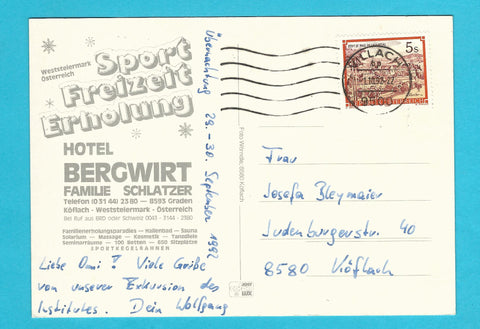 Weststeiermark
Österreich
Sport
Freizeit
Erholung
HOTEL
BERGWIRT
FAMILIE SCHLATZER
Telefon (0 31 44) 23 80 – 8593 Graden
Köflach - Weststeiermark - Österreich
Bei Ruf aus BRD oder Schweiz 0043 - 3144 - 2380
Familienerholungsparadies — Hallenbad — Sauna
Solarium — Massage — Kosmetik — Tanzdiele
Seminarräume — 100 Betten — 650 Sitzplätze
SPORTKEGELBAHNEN
Übernachtung 28.-30. September 1992
Liebe Omi! Viele Grüße
von unserer Exkursion des
Institutes. Dein Wolfgang
Foto Wörndle, 8580 Köflach
VILLACH
9500
5s
REPUBLIK ÖSTERREICH
Frau
Josefa Bleymaier
Judenburgerstr. 40
8580 Köflach